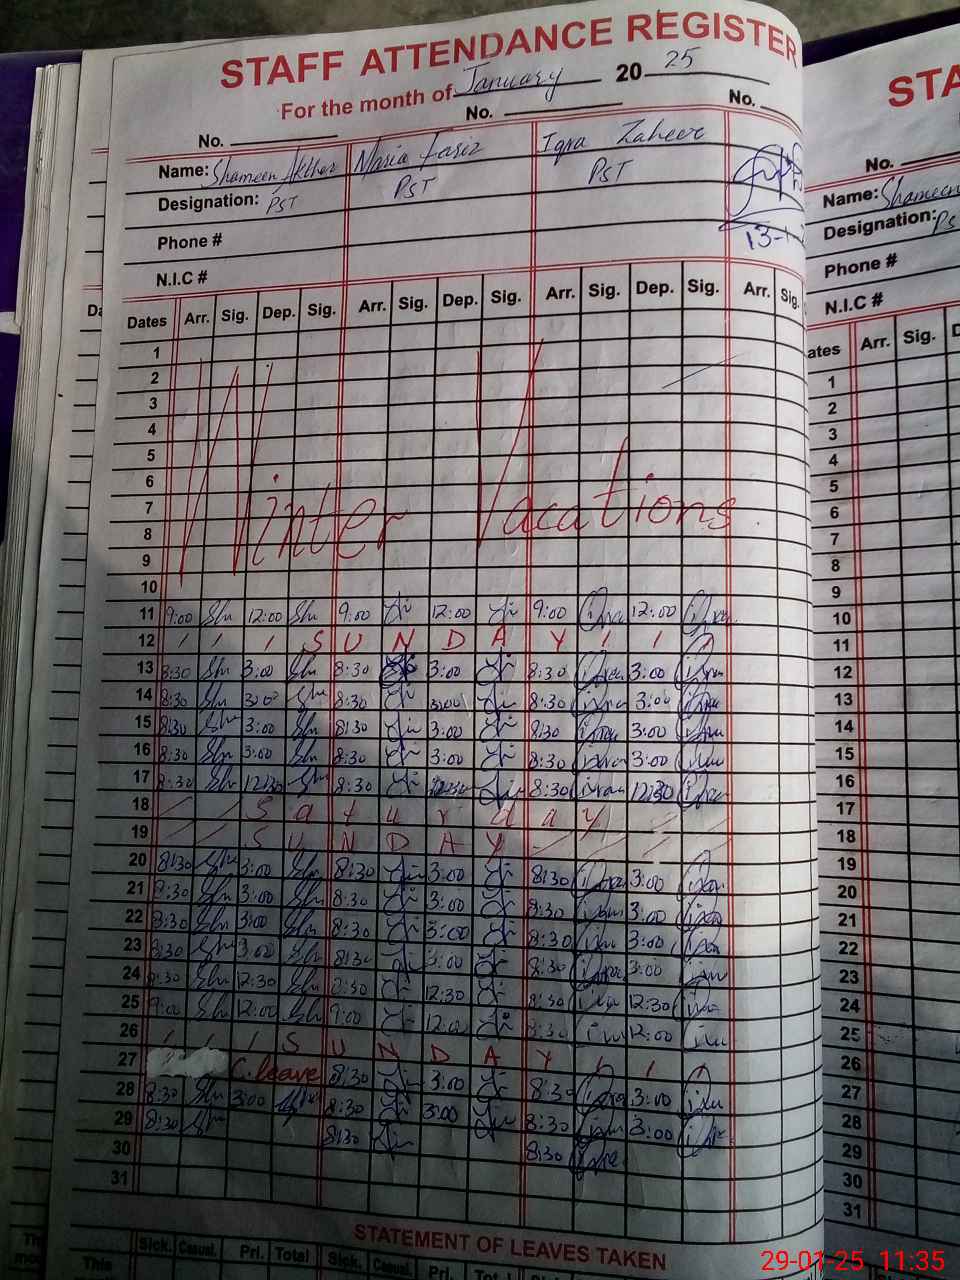 STAFF ATTENDANCE REGISTER
For the month of January 20 25
No. No. No.
Name: Shameen Akhter Maria Fariz Iqra Zaheer
Designation: PST PST PST
Phone #
13-1-
N.I.C #
Dates Arr. Sig. Dep. Sig. Arr. Sig. Dep. Sig. Arr. Sig. Dep. Sig. Arr. Sig.
1
2
3
4
5
6
7
Winter Vacations.
8
9
10
11 9:00 Sh 12:00 Sh 9:00 12:00 9:00 Iqra 12:00 Iqra
12 S U N D A Y
13 8:30 Sh 3:00 Sh 8:30 3:00 8:30 Iqra 3:00 Iqra
14 8:30 Sh 3:00 Sh 8:30 3:00 8:30 Iqra 3:00 Iqra
15 8:30 Sh 3:00 Sh 8:30 3:00 8:30 Iqra 3:00 Iqra
16 8:30 Sh 3:00 Sh 8:30 3:00 8:30 Iqra 3:00 Iqra
17 8:30 Sh 12:30 Sh 8:30 12:30 8:30 Iqra 12:30 Iqra
18 S a t u r d a y
19 S U N D A Y
20 8:30 Sh 3:00 Sh 8:30 3:00 8:30 Iqra 3:00 Iqra
21 8:30 Sh 3:00 Sh 8:30 3:00 8:30 Iqra 3:00 Iqra
22 8:30 Sh 3:00 Sh 8:30 3:00 8:30 Iqra 3:00 Iqra
23 8:30 Sh 3:00 Sh 8:30 3:00 8:30 Iqra 3:00 Iqra
24 8:30 Sh 12:30 Sh 8:30 12:30 8:30 Iqra 12:30 Iqra
25 9:00 Sh 12:00 Sh 9:00 12:00 8:30 Iqra 12:00 Iqra
26 S U N D A Y
27 C.leave 8:30 3:00 8:30 Iqra 3:00 Iqra
28 8:30 Sh 3:00 8:30 3:00 8:30 Iqra 3:00 Iqra
29 8:30 Sh 8:30 8:30 Iqra
30
31
STATEMENT OF LEAVES TAKEN
Sick. Casual. Pri. Total Sick. Casual. Pri. Total Sick.
This
STA
No.
Name: Shameen
Designation: PS
Phone #
N.I.C #
ates Arr. Sig. D
1
2
3
4
5
6
7
8
9
10
11
12
13
14
15
16
17
18
19
20
21
22
23
24
25
26
27
28
29
30
31
29-01-25 11:35